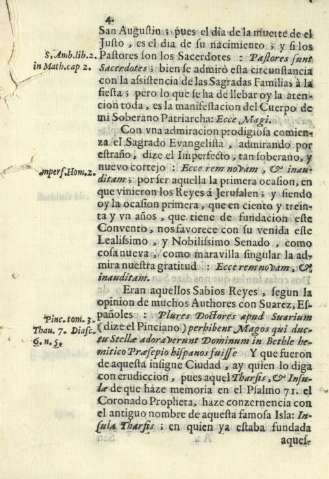 4.
San Augustin ; pues el dia de la muerte de el
Justo , es el dia de su nacimiento ; y si los
S. Amb. lib. 2. Pastores son los Sacerdotes : Pastores sunt
in Math. cap 2. Sacerdotes ; bien se admirò esta circunstancia
con la assistencia de las Sagradas Familias à la
fiesta ; pero lo que se ha de llebar oy la aten-
cion toda , es la manifestacion del Cuerpo de
mi Soberano Patriarcha: Ecce Magi.
Con vna admiracion prodigiosa comien-
za el Sagrado Evangelista , admirando por
estraño , dize el Imperfecto, tan soberano, y
nuevo cortejo : Ecce rem novam , & inau-
Imperf. Hom. 2. ditam; por ser aquella la primera ocasion, en
que vinieron los Reyes à Jerusalen; y siendo
oy la ocasion primera, que en ciento y trein-
ta y vn años , que tiene de fundacion este
Convento, nos favorece con su venida este
Lealissimo , y Nobilissimo Senado , como
cosa nueva , como maravilla singular la ad-
mira nuestra gratitud : Ecce rem novam, &
inauditam.
Eran aquellos Sabios Reyes , segun la
opinion de muchos Authores con Suarez, Es-
Pinc. tom. 3. pañoles : Plures Doctores apud Suarium
Thau. 7. Diasc. (dize el Pinciano) perhibent Magos qui duc-
6. n. 5. tu Stellæ adoraverunt Dominum in Bethle he-
mitico Præsepio hispanos fuisse Y que fueron
de aquesta insigne Ciudad, ay quien lo diga
con erudiccion, pues aquel Tharsis, & Insu-
læ de que haze memoria en el Psalmo 71. el
Coronado Propheta, haze conzernencia con
el antiguo nombre de aquesta famosa Isla: In-
sula Tharsis : en quien ya estaba fundada
aques-